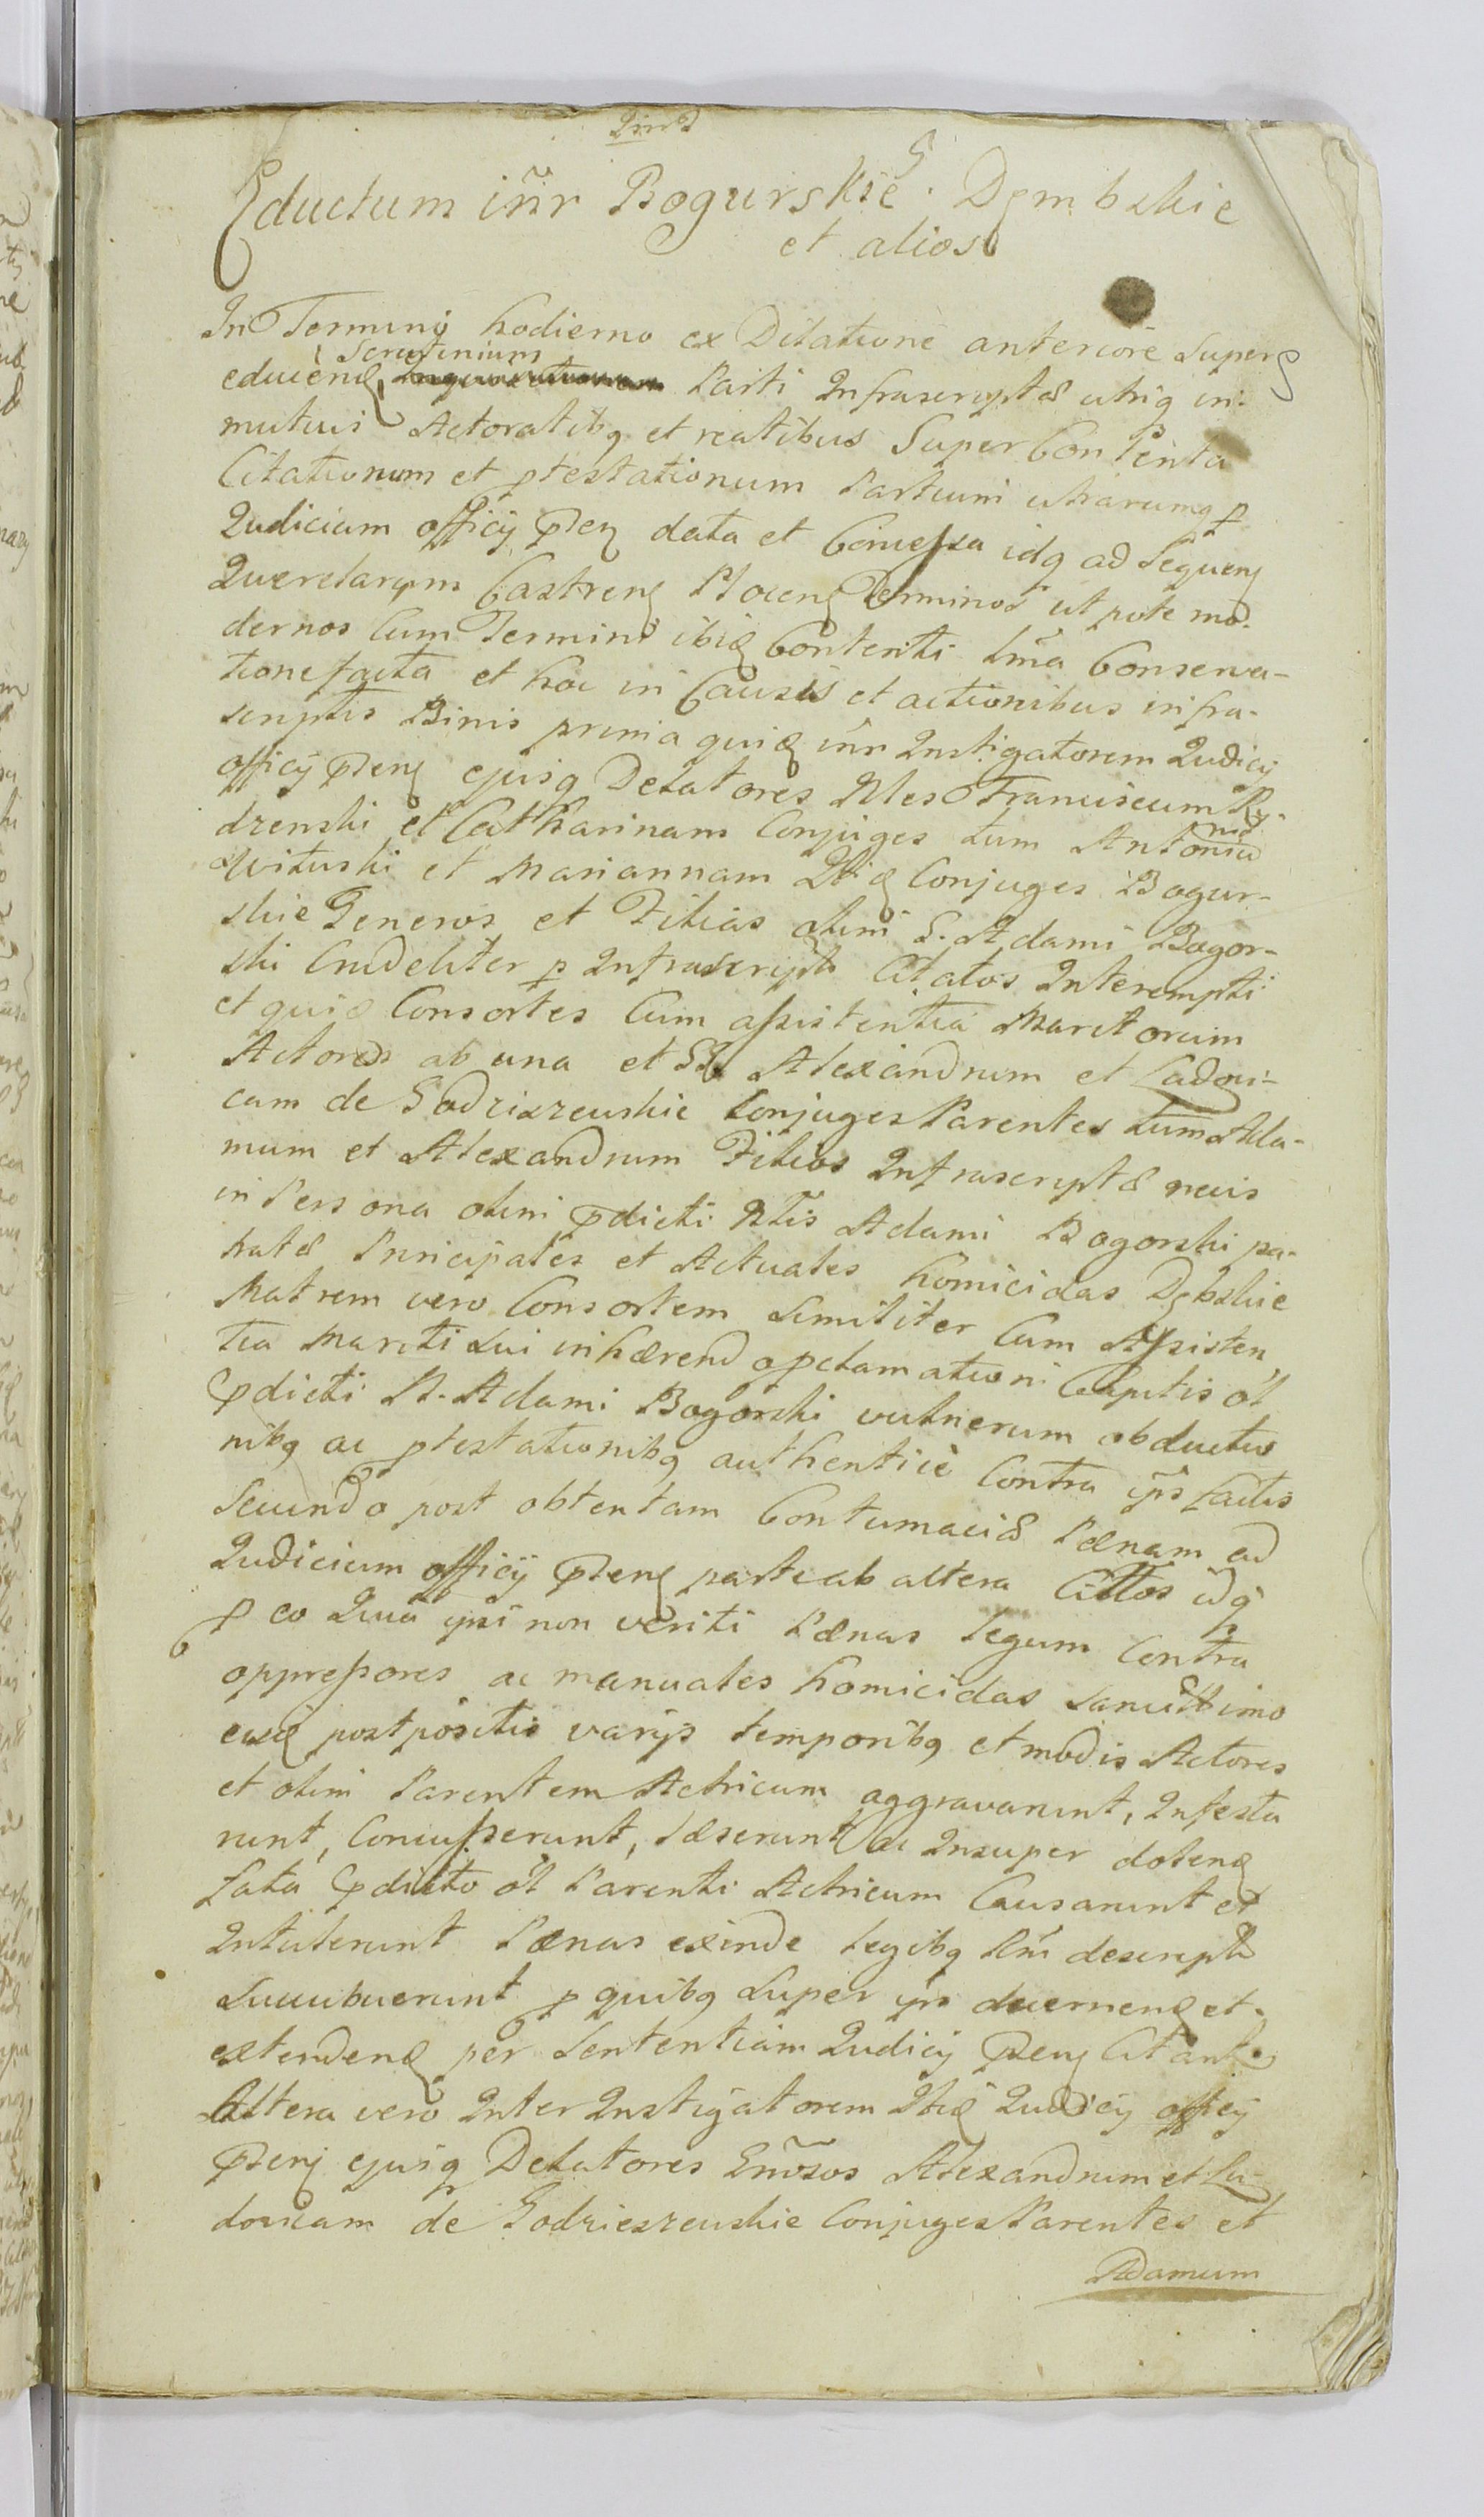 Eductum inr̃ Bogurskie. Dembskie
et alios
In Termino hodierno ex Dilatione anteriore Super
educẽn Scrutinium Parti Infrascriptæ utriq in
mutuis Actoratibq et reatibus Super Contenta
Citationum et ptestationum Partium utrarumq p
Judicium officij Pseñ data et Concessa idq ad Sequeñ
Querelarum Castreñ Ploceñ Terminos ut pote mo-
dernos Cum Termini ibiq Contenti tma Conserva-
tione facta et hoc in Causis et actionibus infra-
scriptis Binis prima quiq inr̃ Instigatorem Judicij
officij Pseñ ejusq Delatores Nles Franciscum Ry-
drenski et Catharinam Conjuges tum Antoniu
Wituski et Mariannam Conjuges Bogur-
skie Generos et Filias olim G. Adami Bogor-
ski Crudeliter p Infrascript Citatos Interempti
et quiq Consortes Cum assistentia Maritorum
Actores ab una et Alexandrum et Ludovi-
cam de Godziszewskie Conjuges Parentes tum Ada-
mum et Alexandrum Filios Infrascriptæ necis
in Persona olim pdicti Nlis Adami Bogorski pa-
tratæ Principales et Actuales homicidas Dębskie
Matrem vero Consortem Similiter Cum Assisten
tia Mariti sui inhærend opclamationi Capitis ol̃
pdicti N. Adami Bogorski vulnerum obductio
nibq ac ptestationibq authentice Contra ip̃s factis
Secundo post obtentam Contumaciæ Pænam ad
Judicium officij Pseñ parte ab altera Cittos idq
p eo Quia ipsi non veriti Pænas legum Contra
oppressores ac manuales homicidas sancitt imo
eisq postpositis varijs temporibq et modis Actores
et olim Parentem Actricum aggravarunt, Infesta
runt, Concusserunt, Læserunt ac Insuper dolenq
fata pdicto ol̃ Parenti Actricum Causarunt et
Intulerunt Pænas exinde legibq Rñi descript
Succubuerunt p quibq Super ip̃s decernenq et
extendenq per Sententiam Judicij Pseñ Citant
Altera vero Inter Instigatorem Judicij officij
Pseñ ejusq Delatores Gñosos Alexandrum et Lu-
dovicam de Godzieszewskie Conjuges Parentes et
Adamum